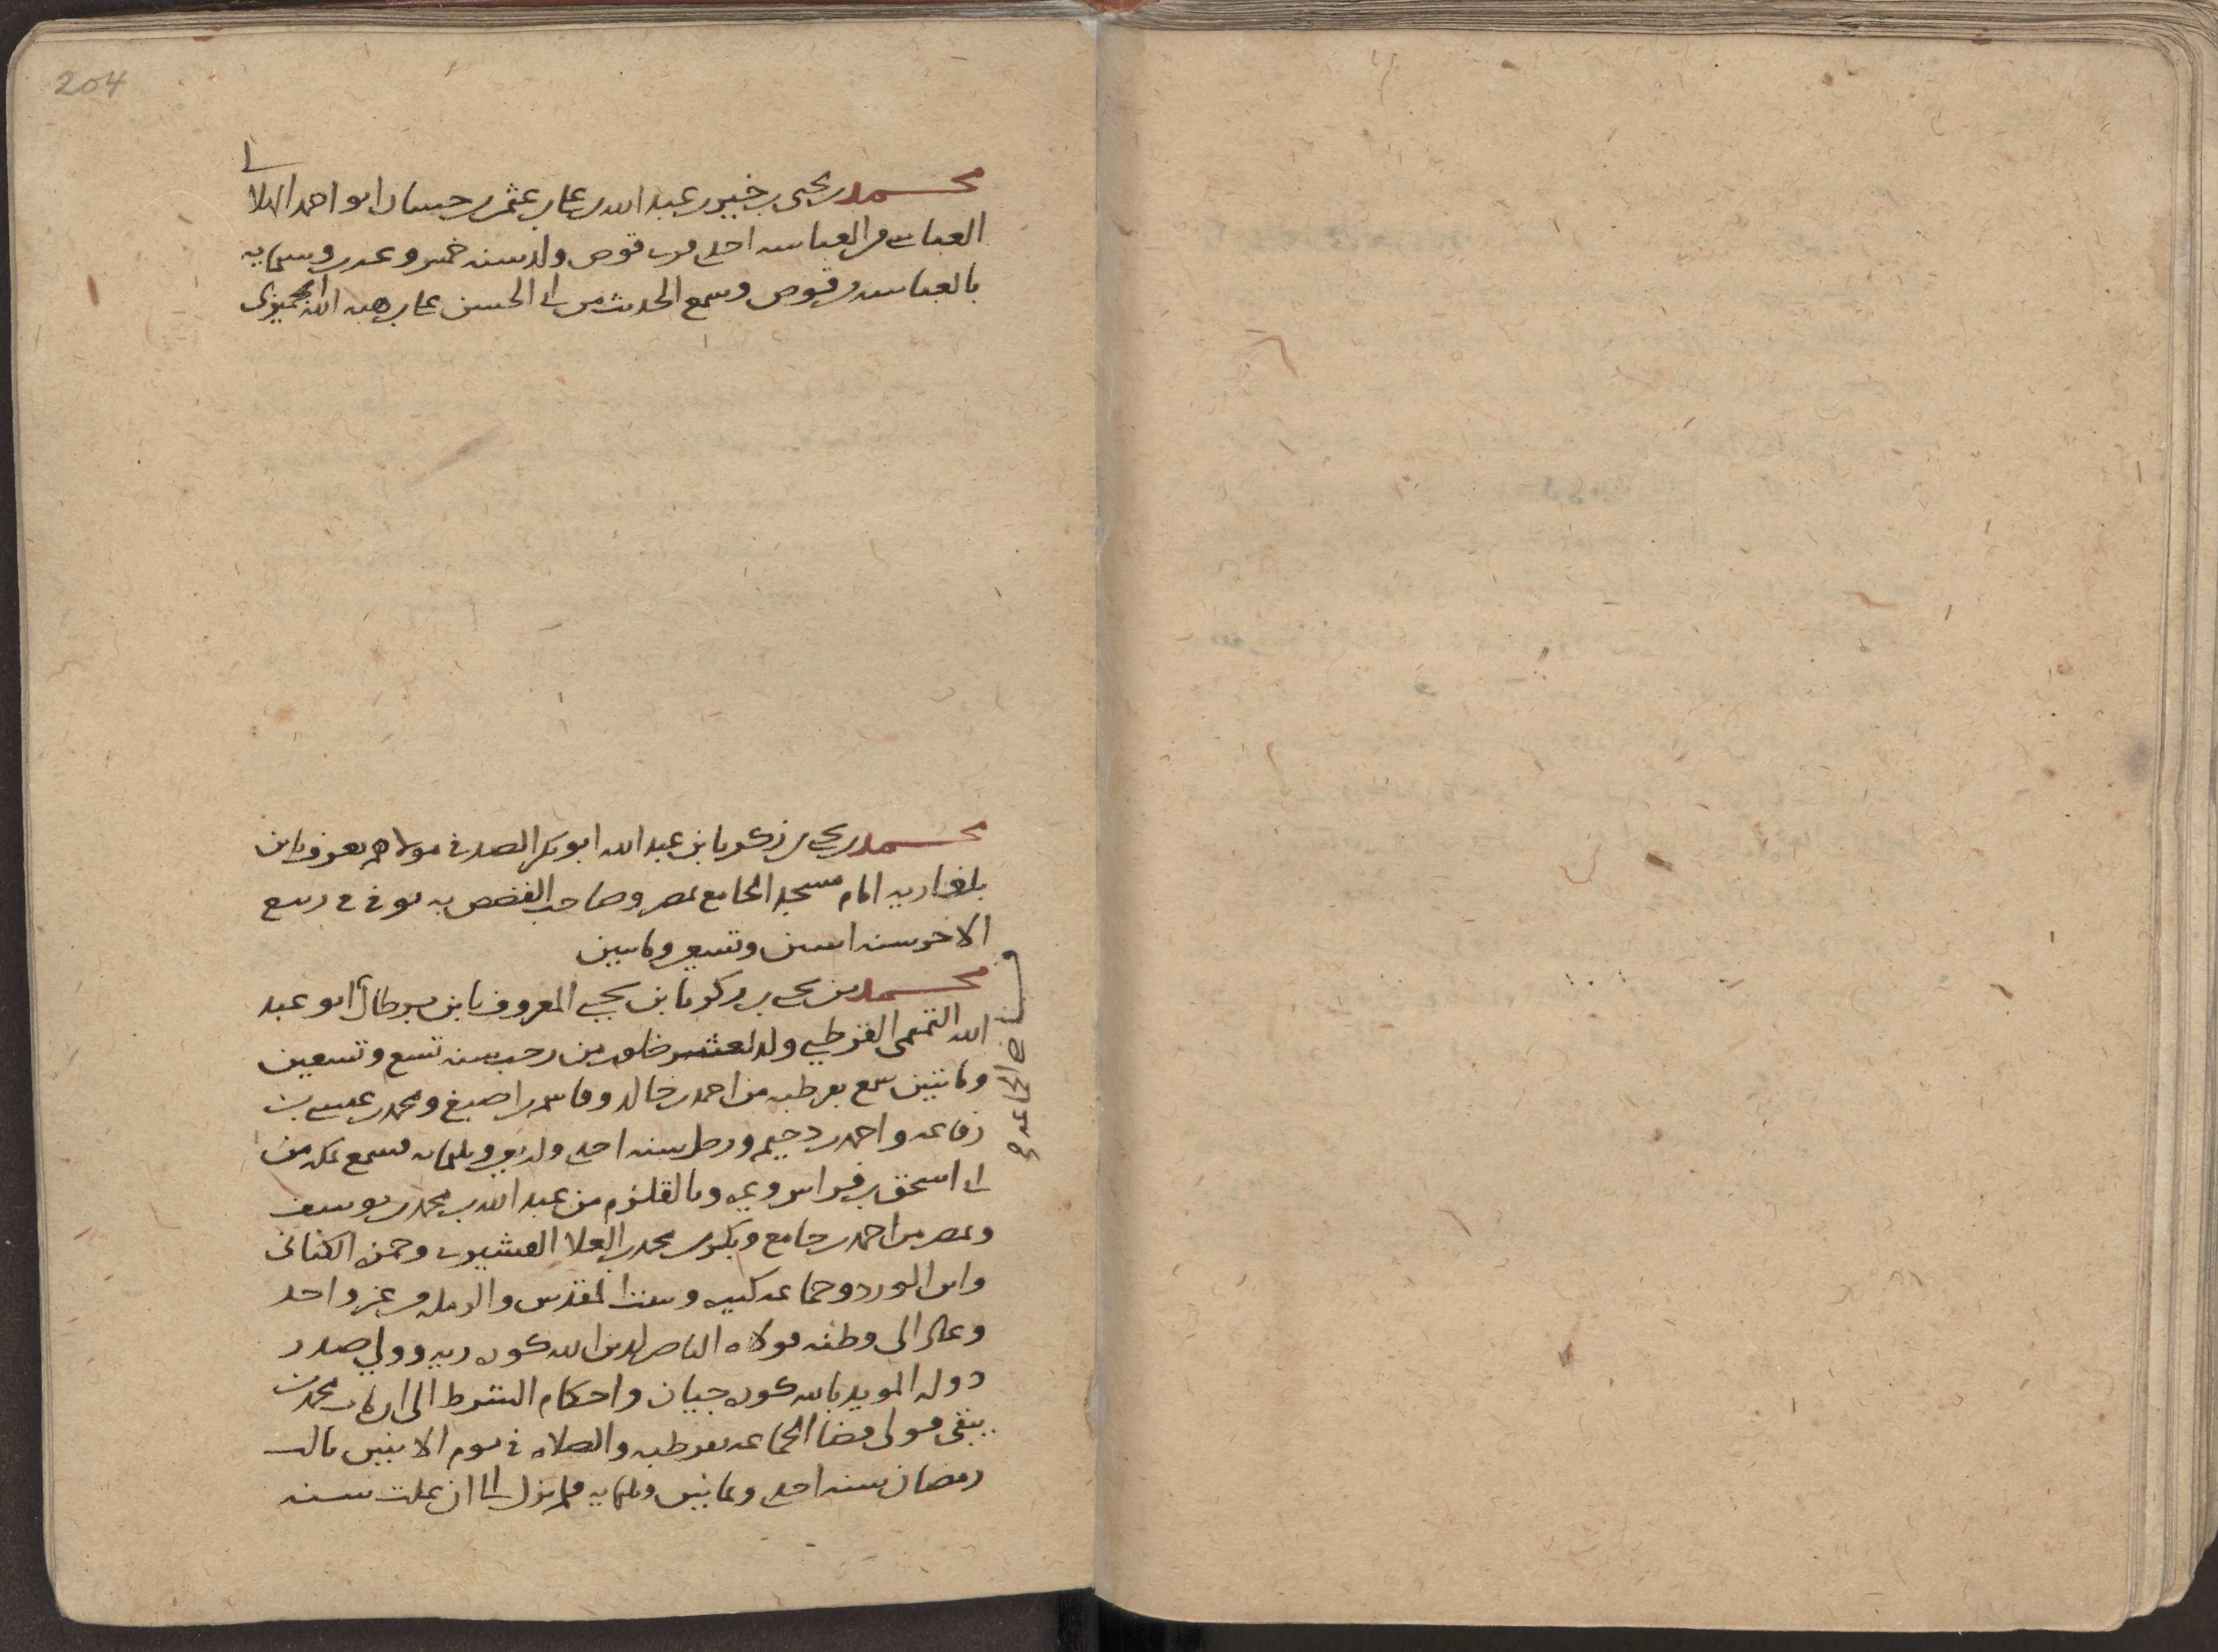 204
محمد بن يحيى بن خيبر بن عبد الله بن علي بن عثمن بن حسان ابو احمد الهلالي
العباسي من العباسه احدى قرى قوص ولد سنه خمس وعشرين وستمايه
بالعباسه وقوص وسمع الحديث من ابي الحسن علي بن هبه الله الجميزى
محمد بن يحيى بن زكريا بن عبد الله ابو بكر الصدفى مولاهم يعرف بابن
امام مسجد الجامع بمصر وصاحب القصص به توفى فى ربيع
الاخر سنه اثنين وتسعين وماتين
محمد بن يحيى بن زكريا بن يحيى المعروف بابن برطال ابو عبد
الله التميمى القرطبى ولد لعشر خلون من رجب سنه تسع وتسعين
وماتيين سمع بقرطبه من احمد بن خالد وقاسم بن اصبغ ومحمد بن عيسى بن
رفاعه واحمد بن دحيم ورحل سنه احدى واربعين وثلثمايه فسمع بمكه من
ابي اسحق بن فراس وغيره وبالقلزم من عبد الله بن محمد بن يوسف
وبمصر من احمد بن جامع وبكر بن محمد بن العلا القشيرى وحمزه الكنانى
وابن الورد وجماعه كثيره وببيت المقدس والرمله من غير واحد
وعاد الى وطنه فولاه الناصر لدين الله كوره ريه وولي صدر
دوله المويد بالله كوره جيان واحكام الشرط الى ان مات محمد بن
يبقى فولى قضا الجماعه بقرطبه والصلاه فى يوم الاثنين ثالث
رمضان سنه احدى وثمانين وثلثمايه فلم يزل الى ان علت سنه
قاضى الجماعه